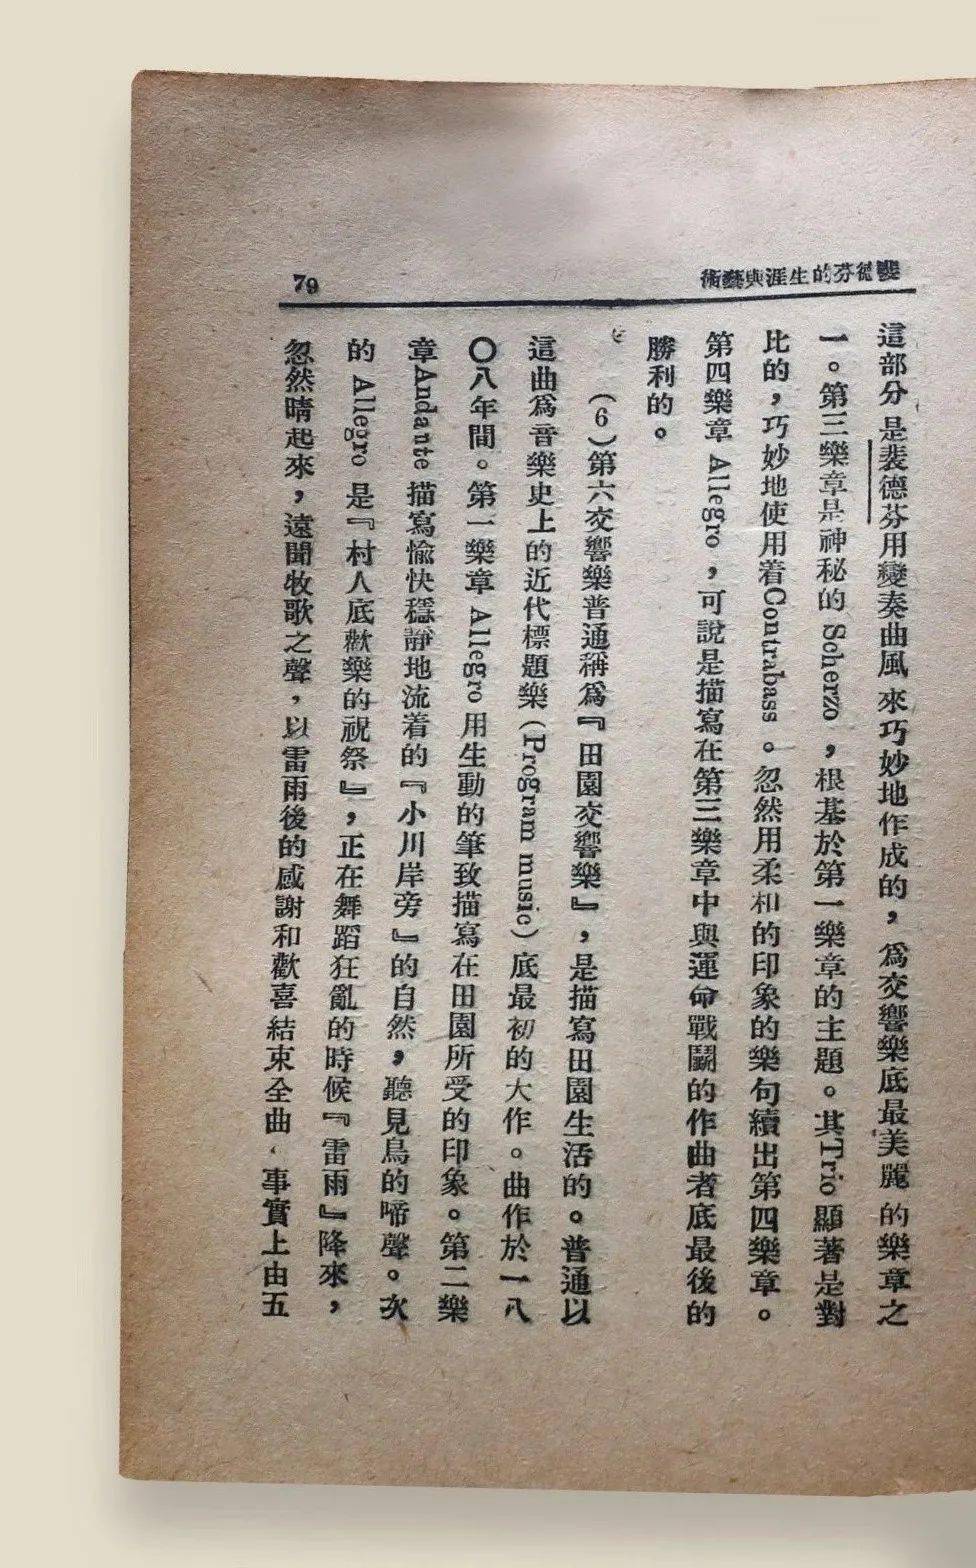 術藝與涯生的芬德裴
79
這部分是裴德芬用變奏曲風來巧妙地作成的，爲交響樂底最美麗的樂章之
一。第三樂章是神秘的 Scherzo，根基於第一樂章的主題。其Trio顯著是對
比的，巧妙地使用着Contrabass。忽然用柔和的印象的樂句續出第四樂章。
第四樂章 Allegro，可說是描寫在第三樂章中與運命戰鬪的作曲者底最後的
勝利的。
（6）第六交響樂普通稱爲『田園交響樂』，是描寫田園生活的。普通以
這曲爲音樂史上的近代標題樂（Program music）底最初的大作。曲作於一八
〇八年間。第一樂章 Allegro 用生動的筆致描寫在田園所受的印象。第二樂
章Andante 描寫愉快穩靜地流着的『小川岸旁』的自然，聽見鳥的啼聲。次
的 Allegro 是『村人底歡樂的祝祭』，正在舞蹈狂亂的時候『雷雨』降來，
忽然晴起來，遠聞牧歌之聲，以雷雨後的感謝和歡喜結束全曲．事實上由五